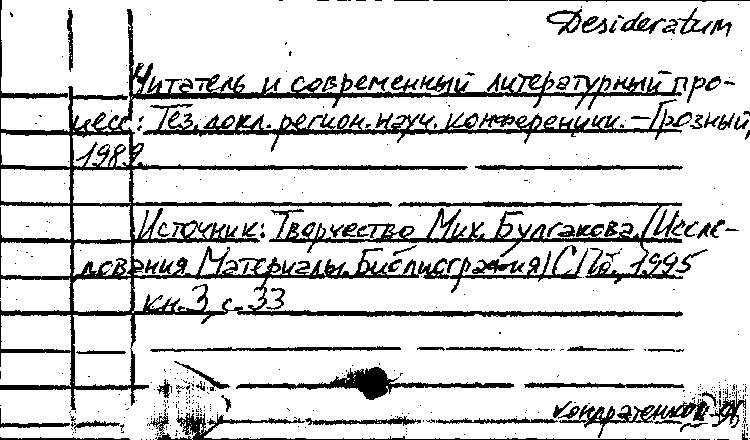 Desideratum
Читатель и современный литературный про-
цесс: Тез. докл. регион. науч. конференции. – Грозный,
1989.
Источник: Творчество Мих. Булгакова. (Иссле-
дования. Материалы. Библиография) СПб., 1995
кн. 3, с. 33